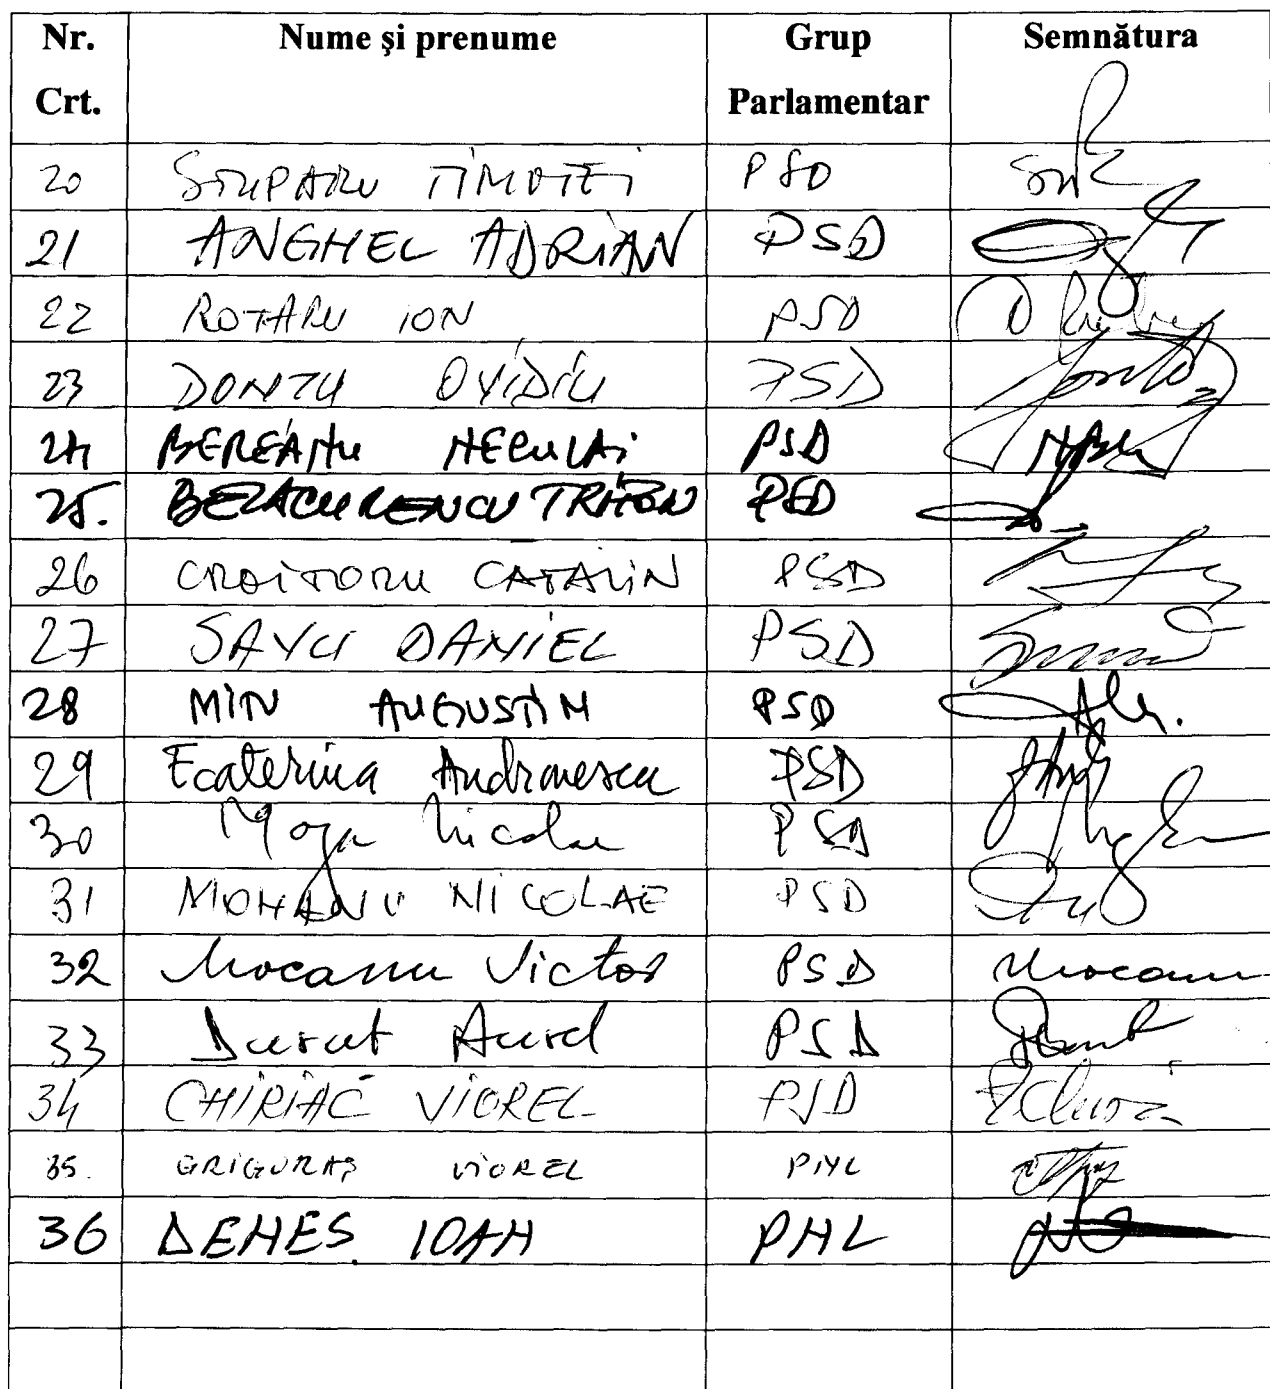 Nr. Crt. Nume şi prenume Grup Parlamentar Semnătura
20 STUPARU TIMOTEI PSD
21 ANGHEL ADRIAN PSD
22 ROTARU ION PSD
23 DONTU OVIDIU PSD
24 BEREANU NECULAI PSD
25. PSD
26 CROITORU CATALIN PSD
27 SAVU DANIEL PSD
28 MITU AUGUSTIN PSD
29 Ecaterina Andronescu PSD
30 Moga Nicolae PSD
31 NICOLAE PSD
32 Mocanu Victor PSD Mocanu
33 Aurel PSD
34 CHIRIAC VIOREL PSD
35. GRIGORAŞ VIOREL PNL
36 DENES IOAN PNL